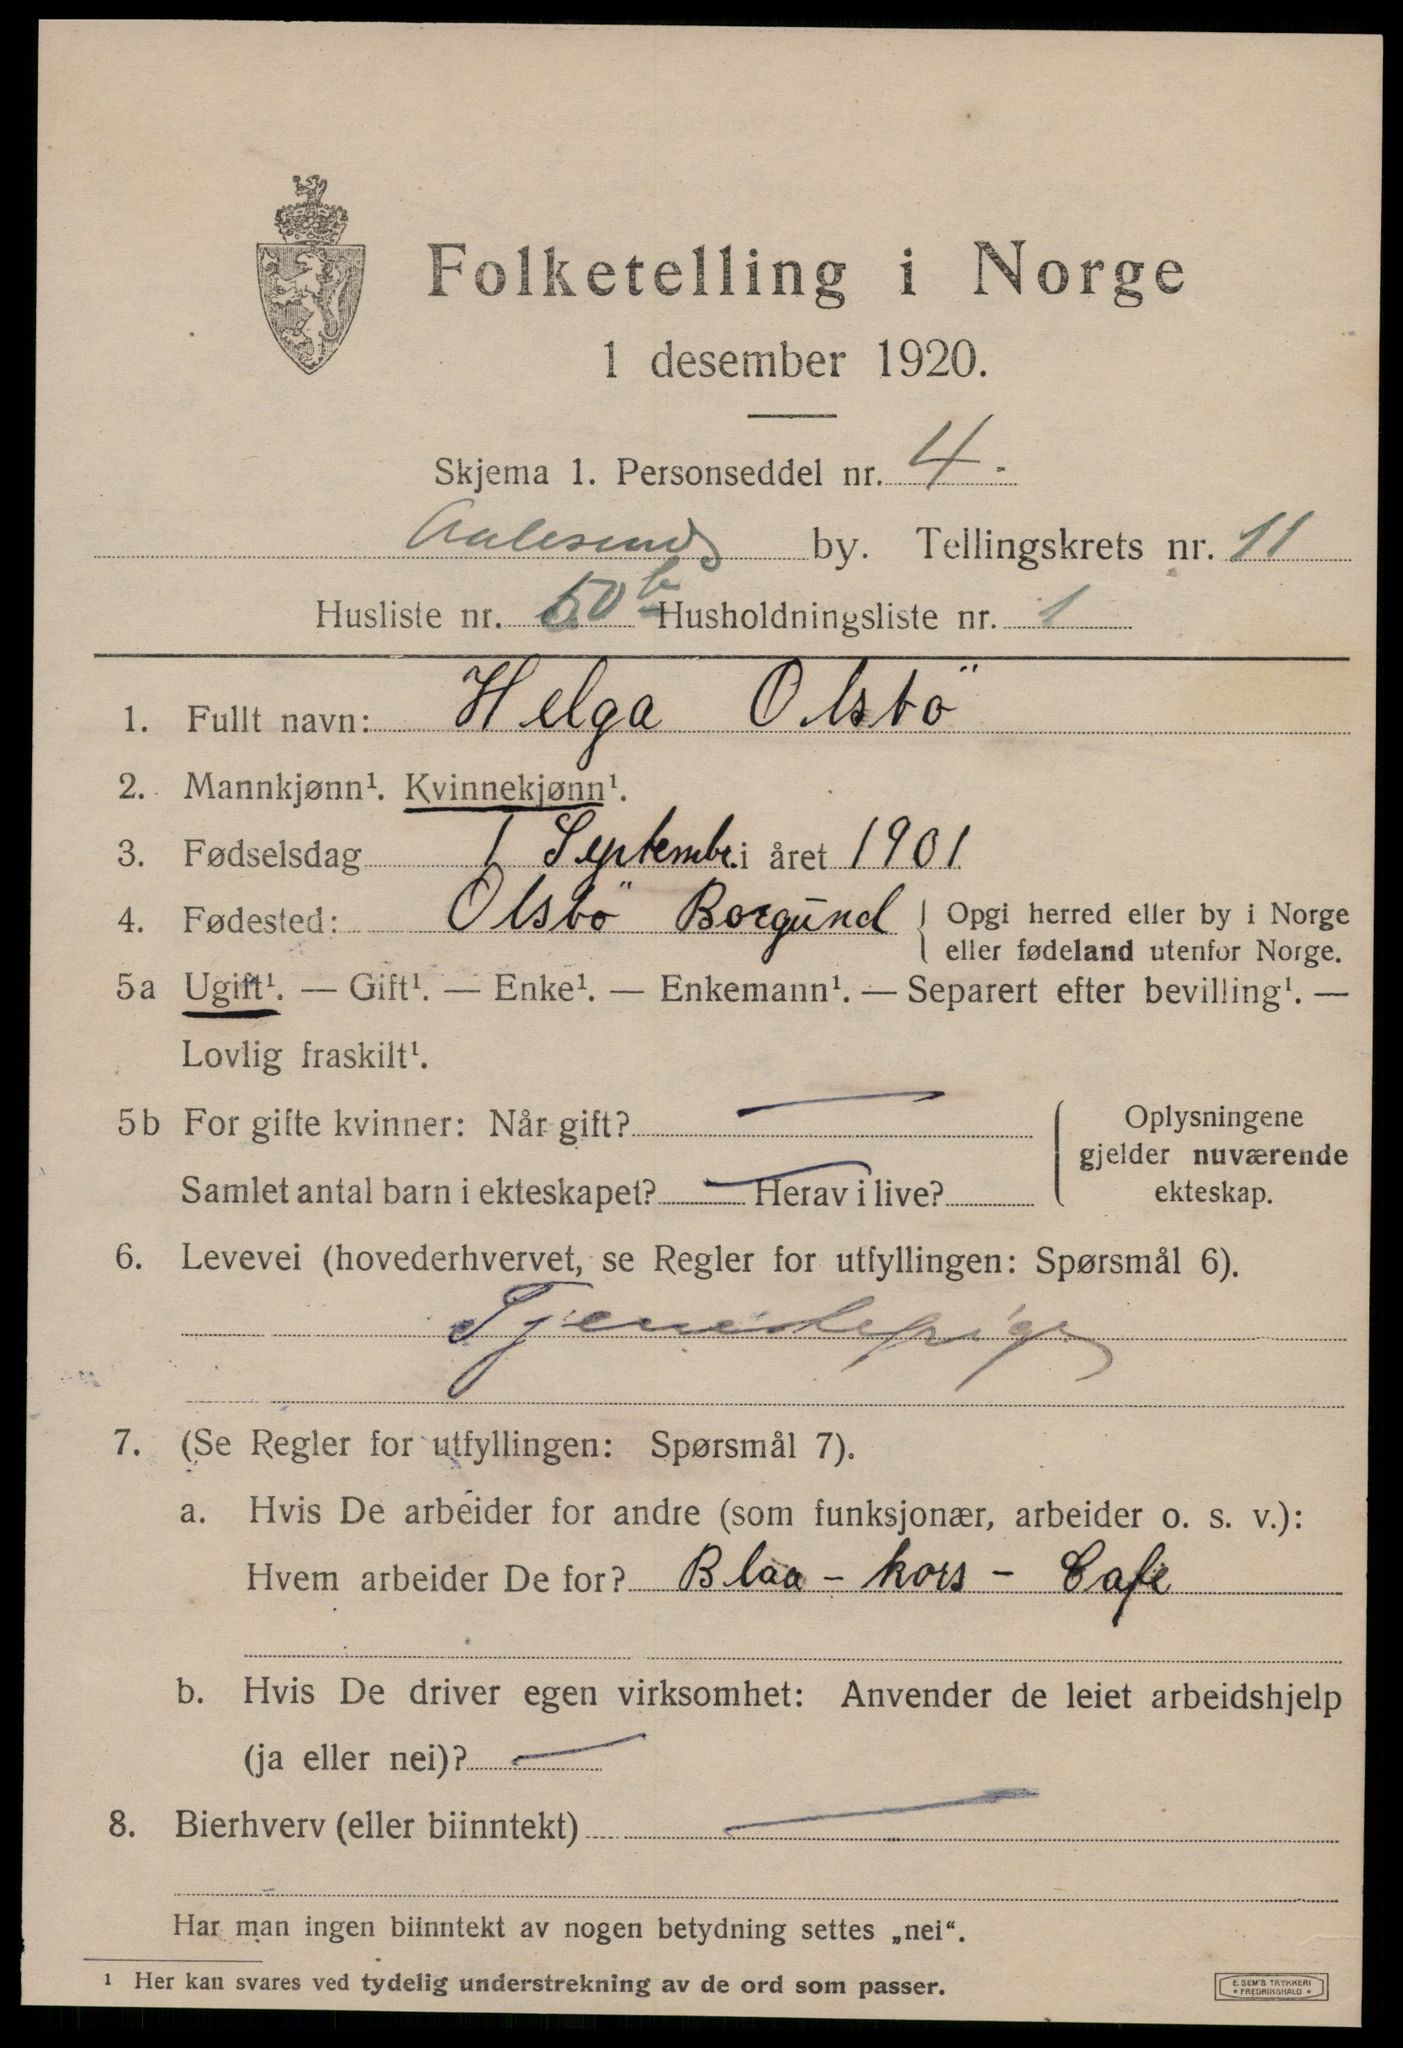 Folketelling i Norge
1 desember 1920.
Skjema 1. Personseddel nr. 4.
Aalesunds by. Tellingskrets nr. 11
Husliste nr. 50 b Husholdningsliste nr. 1
1. Fullt navn: Helga Olsbö
2. Mannkjønn¹. Kvinnekjønn¹.
3. Fødselsdag 1 Septembr. i året 1901
4. Fødested: Olsbö Borgund { Opgi herred eller by i Norge
eller fødeland utenfor Norge.
5a Ugift¹. — Gift¹. — Enke¹. — Enkemann¹. — Separert efter bevilling¹. —
Lovlig fraskilt¹.
5b For gifte kvinner: Når gift? — { Oplysningene
gjelder nuværende
ekteskap.
Samlet antal barn i ekteskapet? — Herav i live?
6. Levevei (hovederhvervet, se Regler for utfyllingen: Spørsmål 6).
Tjenestepige
7. (Se Regler for utfyllingen: Spørsmål 7).
a. Hvis De arbeider for andre (som funksjonær, arbeider o. s. v.):
Hvem arbeider De for? Blaa - kors - Cafe
b. Hvis De driver egen virksomhet: Anvender de leiet arbeidshjelp
(ja eller nei)? —
8. Bierhverv (eller biinntekt) —
Har man ingen biinntekt av nogen betydning settes „nei“.
¹ Her kan svares ved tydelig understrekning av de ord som passer.
E. SEM'S TRYKKERI
• FREDRIKSHALD •